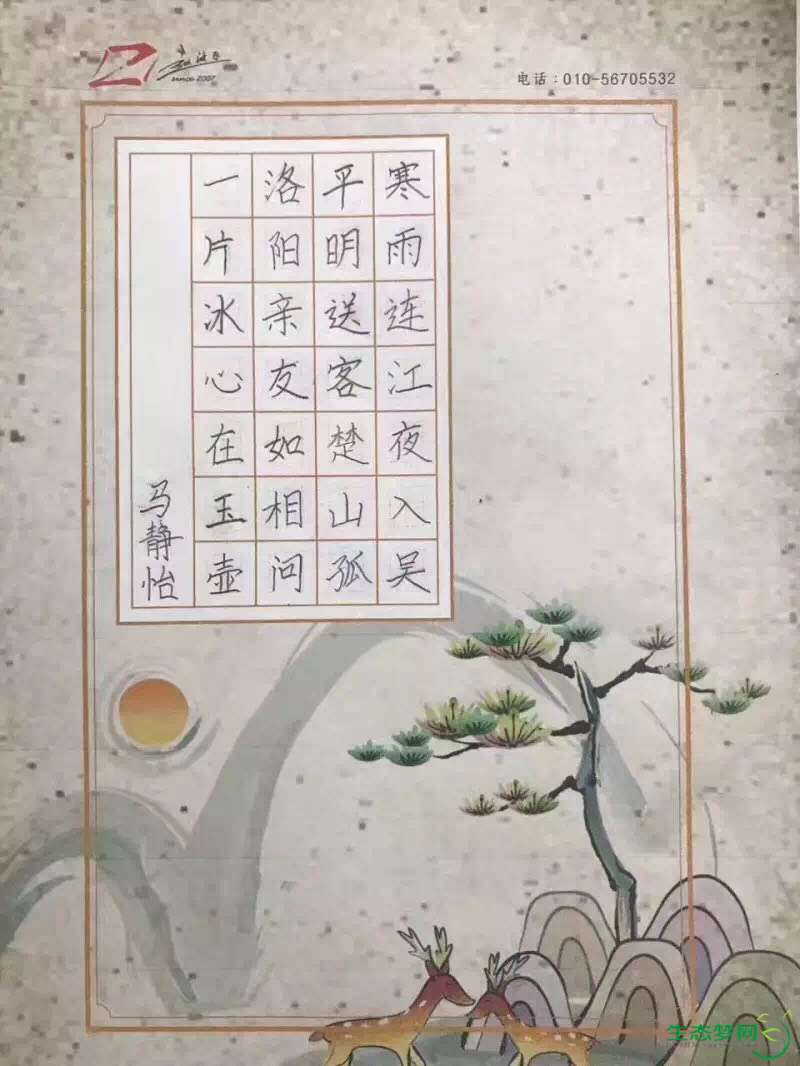 since 2007
电话：010-56705532
寒雨连江夜入吴
平明送客楚山孤
洛阳亲友如相问
一片冰心在玉壶
马静怡
生态梦网